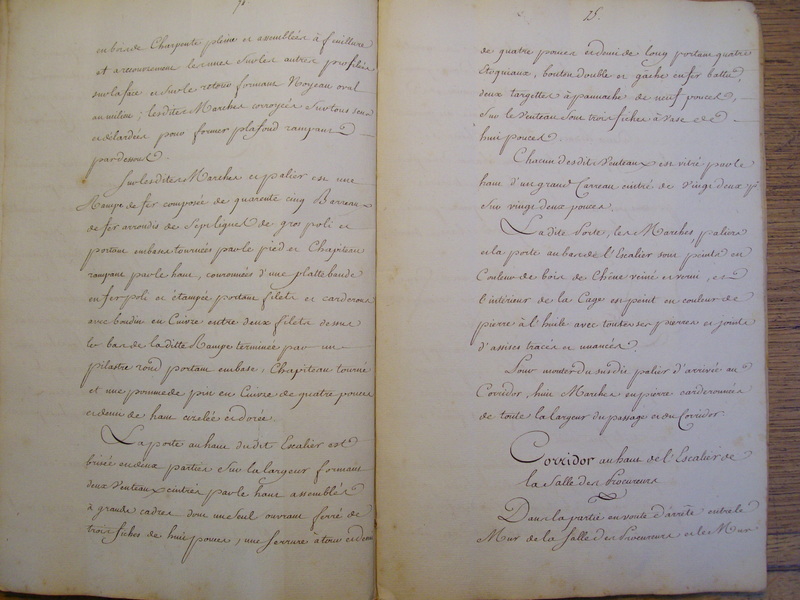 en bois de Charpente pleine et assemblées à feuillure
et a recouvrement les unes sur les autres profilées
sur la face et sur le retour formant Noyeau oval
au milieu; lesdites Marches corroyées sur tous sens
et délardées pour former plafond rampant
par dessous.
Sur lesdites Marches et palier est une
Rampe de fer composée de quarente cinq Barreaux
de fer arrondis de sept lignes de gros poli et
portant embase tournées par le pied et Chapiteau
rampant par le haut, couronnées d'une platte bande
en fer poli et étampée portant filets et carderons
avec boudin en Cuivre entre deux filets dessus
le bas de la ditte Rampe terminée par un
pilastre rond portant embase, Chapiteau tourné
et une pomme de pin en Cuivre de quatre pouces
et demi de haut cizelée et dorée.
La porte au haut dudit Escalier est
brisée en deux parties sur la largeur formant
deux Venteaux cintrés par le haut assemblés
à grands cadres dont un seul ouvrant ferré de
trois fiches de huit pouces, une serrure à tour et demi
25.
de quatre pouces et demi de long portant quatre
Etoquiaux, bouton double et gâche en fer battu,
deux targettes à pannache de neuf pouces,
sur le Venteau sont trois fiches à Vase de
huit pouces.
Chacun desdits Venteaux est vitré par le
haut d'un grand Carreau cintré de vingt deux
sur vingt deux pouces.
La dite Porte, les Marches, paliers
et la porte au bas de l'Escalier sont peints en
Couleur de bois de Chêne veiné et verni, et
l'intérieur de la Cage est peint en couleur de
pierre à l'huile avec toutes ses pierres et joints
d'assises tracés et nuancés.
Pour monter du susdit palier d'arrivée au
Corridor, huit Marches en pierre carderonnées
de toute la largeur du passage et du Corridor
Corridor au haut de l'Escalier de
la Salle des Procureurs
Dans la partie en voute d'arrête entre le
Mur de la Salle des Procureurs et le Mur